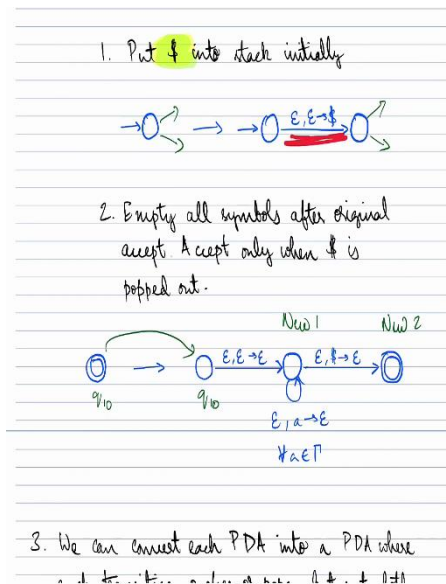 1. Put $ into stack initially
ε, ε→$
2. Empty all symbols after original
accept. Accept only when $ is
popped out.
New 1 New 2
ε, ε→ε ε, $→ε
q10 q10
ε, a→ε
∀a∈Γ
3. We can convert each PDA into a PDA where
each transition